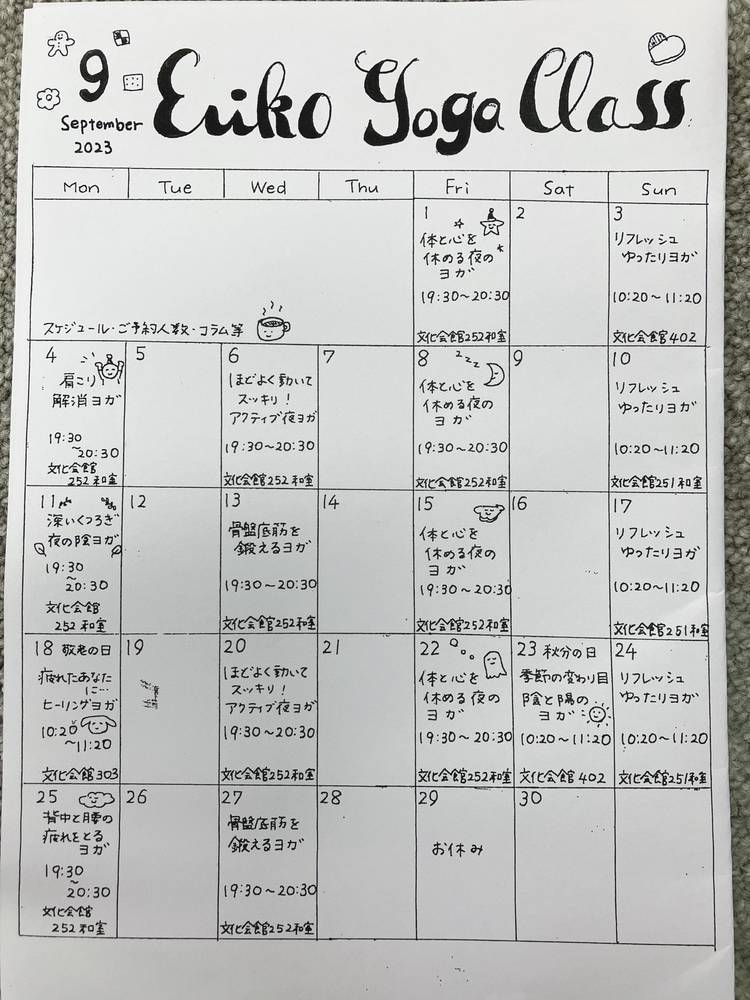 9
September
2023
Eriko Yoga Class
Mon Tue Wed Thu Fri Sat Sun
スケジュール・ご予約人数・コラム等
1
体と心を
休める夜の
ヨガ
19:30~20:30
文化会館252和室
2
3
リフレッシュ
ゆったりヨガ
10:20~11:20
文化会館402
4
肩こり
解消ヨガ
19:30
~20:30
文化会館
252和室
5
6
ほどよく動いて
スッキリ!
アクティブ夜ヨガ
19:30~20:30
文化会館252和室
7
8
zzz
体と心を
休める夜の
ヨガ
19:30~20:30
文化会館252和室
9
10
リフレッシュ
ゆったりヨガ
10:20~11:20
文化会館251和室
11
深いくつろぎ
夜の陰ヨガ
19:30
~20:30
文化会館
252和室
12
13
骨盤底筋を
鍛えるヨガ
19:30~20:30
文化会館252和室
14
15
体と心を
休める夜の
ヨガ
19:30~20:30
文化会館252和室
16
17
リフレッシュ
ゆったりヨガ
10:20~11:20
文化会館251和室
18 敬老の日
疲れたあなた
に…
ヒーリングヨガ
10:20
~11:20
文化会館303
19
20
ほどよく動いて
スッキリ!
アクティブ夜ヨガ
19:30~20:30
文化会館252和室
21
22
体と心を
休める夜の
ヨガ
19:30~20:30
文化会館252和室
23 秋分の日
季節の変わり目
陰と陽の
ヨガ
10:20~11:20
文化会館402
24
リフレッシュ
ゆったりヨガ
10:20~11:20
文化会館251和室
25
背中と腰の
疲れをとる
ヨガ
19:30
~20:30
文化会館
252和室
26
27
骨盤底筋を
鍛えるヨガ
19:30~20:30
文化会館252和室
28
29
お休み
30